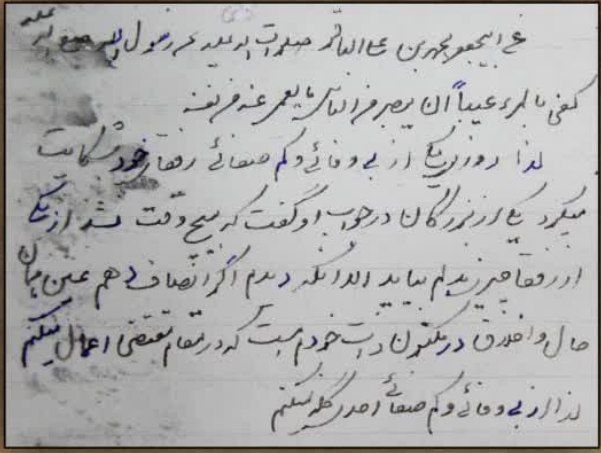 عن ابیجعفر محمد بن علی الباقر صلوات الله علیه عن رسول الله صلی الله علیه
کفی بالمرء عیباً ان یبصر من الناس ما یعمی عنه من نفسه
لذا روزی یکی از بی وفائی و کم صفائی رفقای خود شکایت
میکرد یکی از بزرگان در جواب او گفت که هیچ وقت نشد از یکی
از رفقا چیزی بدلم بیاید الا آنکه دیدم اگر انصاف دهم عین همان
حال و اخلاق در مکنون ذات خودم هست که در مقام مقتضی اعمال میکنم
لذا از بی وفائی و کم صفائی احدی گله نمیکنم